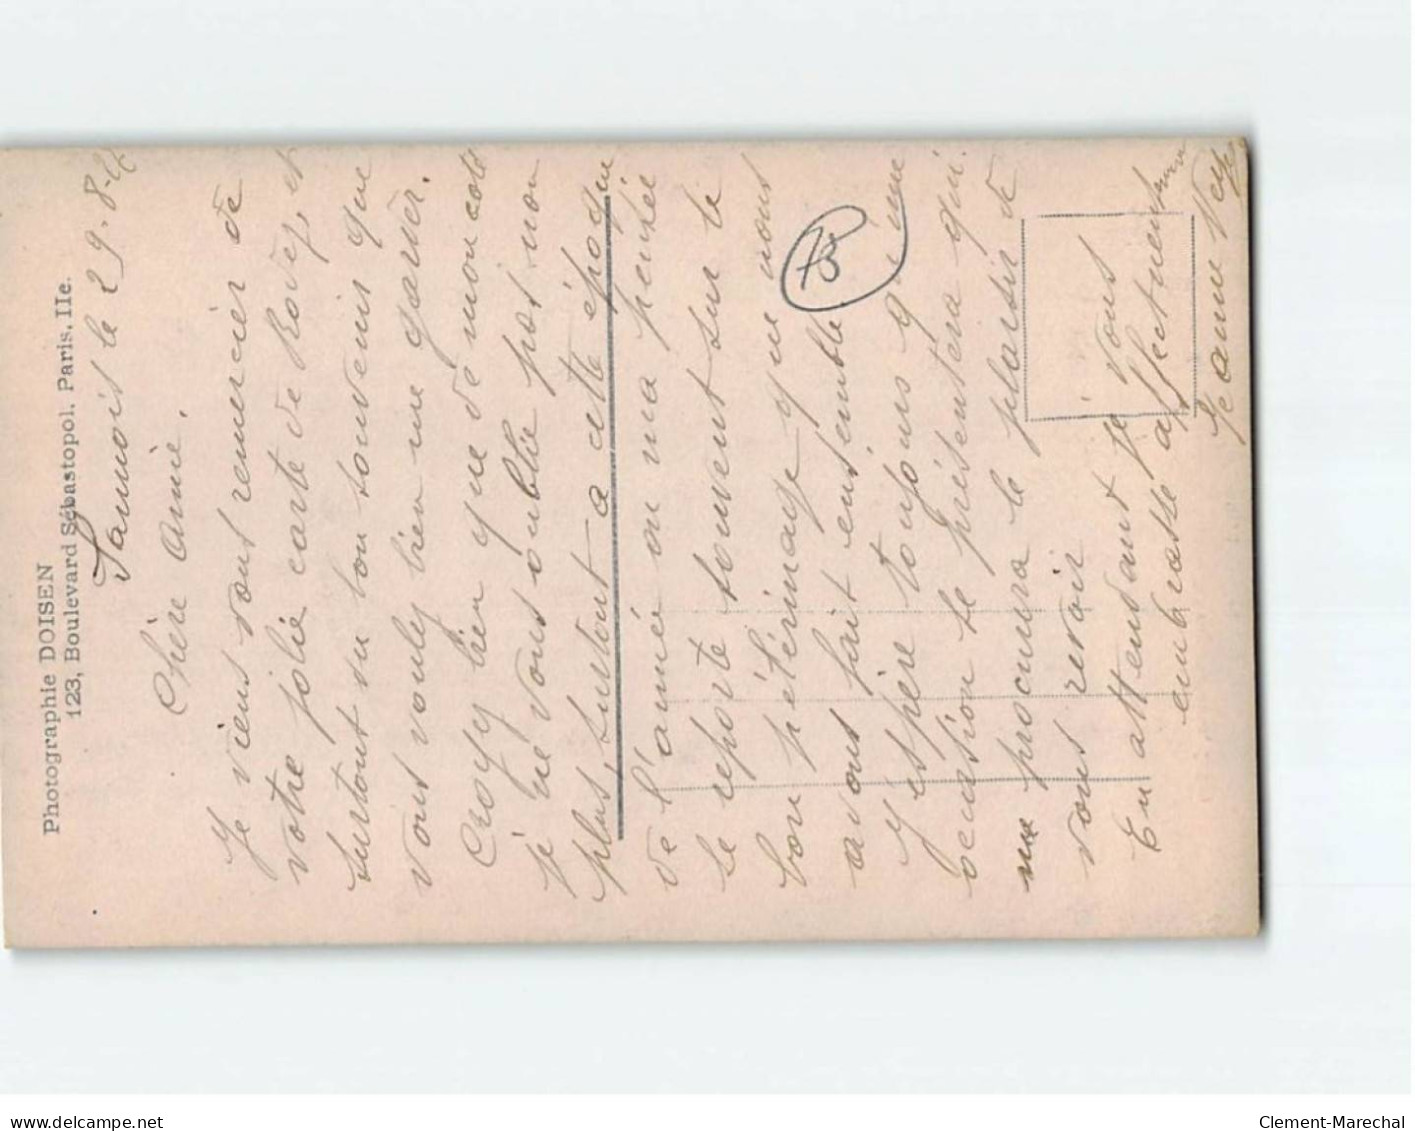 Photographie DOISEN
123, Boulevard Sébastopol, Paris. IIe.
Samois le 29-8-
Chère Amie.
Je viens vous remercier de
votre jolie carte de Rodez, et
surtout du bon souvenir que
vous voulez bien me garder.
Croyez bien que de mon coté
je ne vous oublie pas non
plus, surtout a cette époque
de l'année ou ma pensée
se reporte souvent sur le
bon pélérinage que nous
avons fait ensemble.
J'espère toujours qu'une
occasion se présentera qui
me procurera le plaisir de
vous revoir
En attendant je vous
embrasse affectueusement
Jeanne
73
delcampe.net
Clement-Marechal